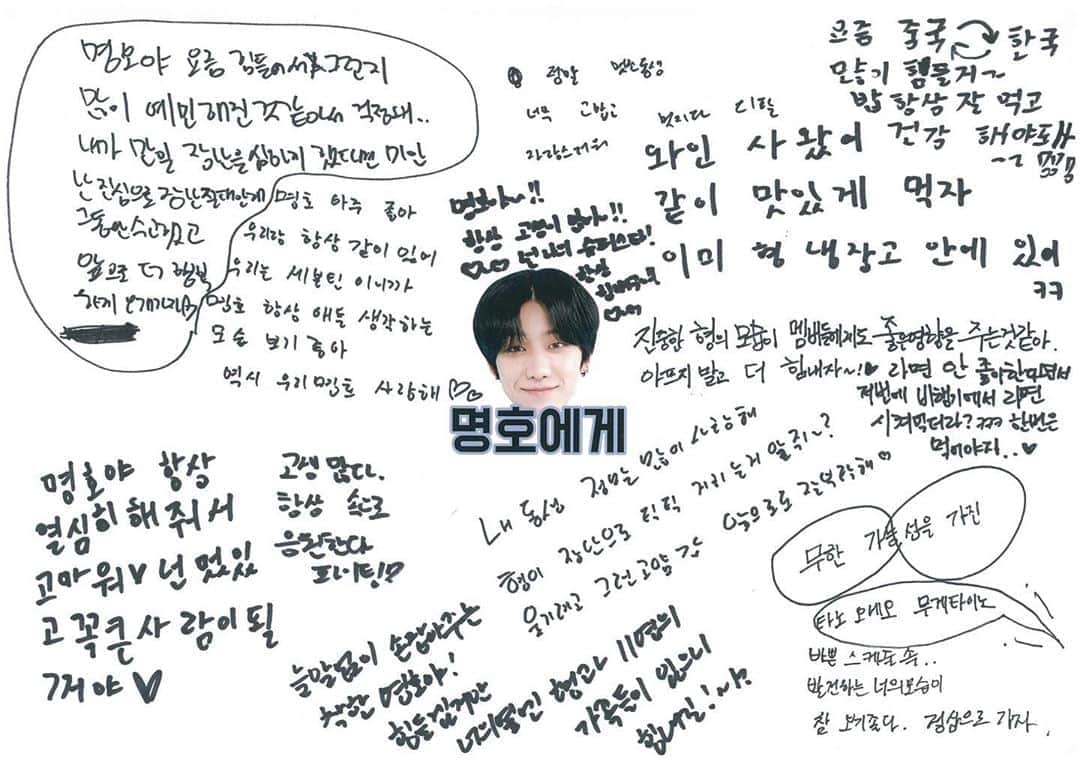 명호야 요즘 힘들어서 그런지
많이 예민해진 것 같아서 걱정돼..
내가 만일 장난을 심하게 쳤다면 미안
난 진심으로
그동안 수고했고
앞으로 더 행복
하게 보내자
명호 아주 좋아
우리랑 항상 같이 있어
우리는 세븐틴 이니까
명호 항상 애들 생각하는
모습 보기 좋아
역시 우리 명호 사랑해
정말 멋진 동생
너무 고맙고
자랑스러워
보컬이다 디틸
요즘 중국 한국
만날기 힘들거~
밥 항상 잘 먹고
건강 해야돼
와인 사 왔어
같이 맛있게 먹자
이미 형 냉장고 안에 있어
ㅋㅋ
명호야~!!
항상 고생이 많아!!
넌 나의 슈퍼스타!
항상
힘내주고
명호에게
진중한 형의 모습이 멤버들에게도 좋은영향을 주는것같아.
아프지 말고 더 힘내자~!♥ 라면 안 좋아한다면서
저번에 비행기에서 라면
시켜먹더라? ㅋㅋㅋ 한번은
먹어야지..♥
명호야 항상
열심히 해 줘서
고마워♥ 넌 멋있
고 꼭 큰 사람이 될
거야♥
고생 많다.
항상 속으로
응원한다
파이팅!?
내 동생 정말 많이 사랑해
형이 장난으로 틱틱 거리는거 알쥐~?
웃기려고 그런고얌 ㅎㅎ 앞으로도 잘부탁해♡
늘 말없이 손잡아주는
착한 명호야!
힘들 길게만
너의 옆엔 형과 11명의
가족들이 있으니
힘내길! 샤?
무한 가능성을 가진
타노 오레오 무게타이노
바쁜 스케듈 속..
발전하는 너의모습이
참 보기좋다. 정상으로 가자.